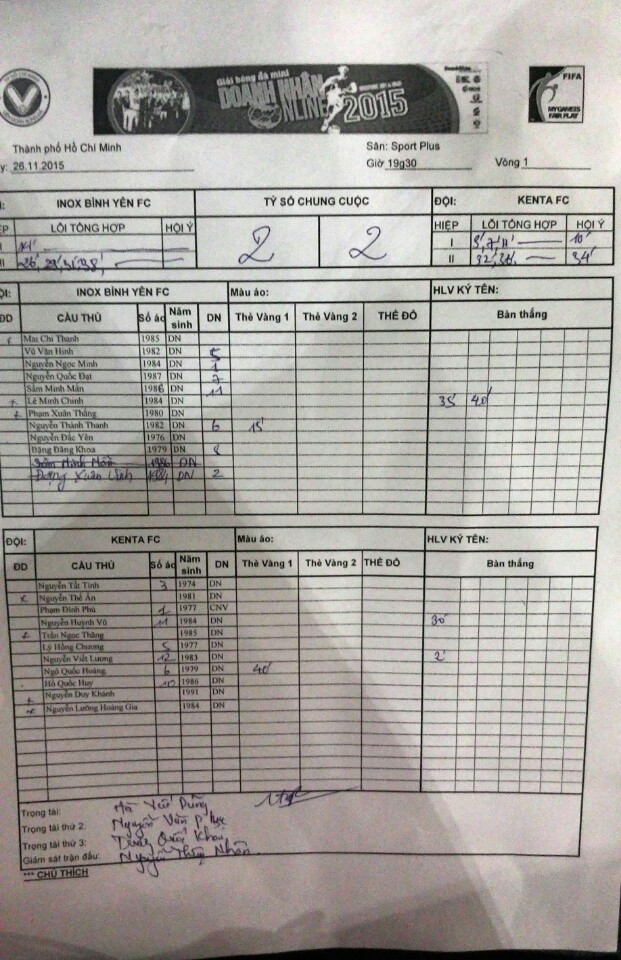 Giải bóng đá mini
DOANH NHÂN
ONLINE 2015
FIFA
MY GAME IS
FAIR PLAY
Thành phố Hồ Chí Minh
Sân: Sport Plus
y: 26.11.2015
Giờ 19g30
Vòng 1
I: INOX BÌNH YÊN FC
TỶ SỐ CHUNG CUỘC
ĐỘI: KENTA FC
ỆP LỖI TỔNG HỢP HỘI Ý
2 2
HIỆP LỖI TỔNG HỢP HỘI Ý
I 14'
I 5', 7', 11' 10'
II 26', 29', 31', 38',
II 32', 36', 34'
ỘI: INOX BÌNH YÊN FC Màu áo: HLV KÝ TÊN:
ĐD CẦU THỦ Số áo Năm sinh DN Thẻ Vàng 1 Thẻ Vàng 2 THẺ ĐỎ Bàn thắng
Mai Chí Thanh 1985 DN
Vũ Văn Hinh 1982 DN 5
Nguyễn Ngọc Minh 1984 DN 1
Nguyễn Quốc Đạt 1987 DN 7
Sầm Minh Mẫn 1986 DN 11
Lê Minh Chinh 1984 DN 35' 40'
Phạm Xuân Thắng 1980 DN
Nguyễn Thành Thanh 1982 DN 6 15'
Nguyễn Đắc Yên 1976 DN
Đặng Đăng Khoa 1979 DN 8
Sầm Minh Mẫn 1986 DN
Xuân DN 2
ĐỘI: KENTA FC Màu áo: HLV KÝ TÊN:
ĐD CẦU THỦ Số áo Năm sinh DN Thẻ Vàng 1 Thẻ Vàng 2 THẺ ĐỎ Bàn thắng
Nguyễn Tất Tính 3 1974 DN
Nguyễn Thế Ân 1981 DN
Phạm Đình Phú 1 1977 CNV
Nguyễn Huỳnh Vũ 11 1984 DN 30'
Trần Ngọc Thăng 1985 DN
Lý Hồng Chương 5 1977 DN
Nguyễn Viết Lượng 12 1983 DN 2'
Ngô Quốc Hoàng 6 1979 DN 40'
Hồ Quốc Huy 10 1986 DN
Nguyễn Duy Khánh 1991 DN
Nguyễn Lương Hoàng Gia 1984 DN
Trọng tài:
Trọng tài thứ 2: Nguyễn Văn
Trọng tài thứ 3: Quốc
Giám sát trận đấu: Nguyễn Nhân
*** CHÚ THÍCH